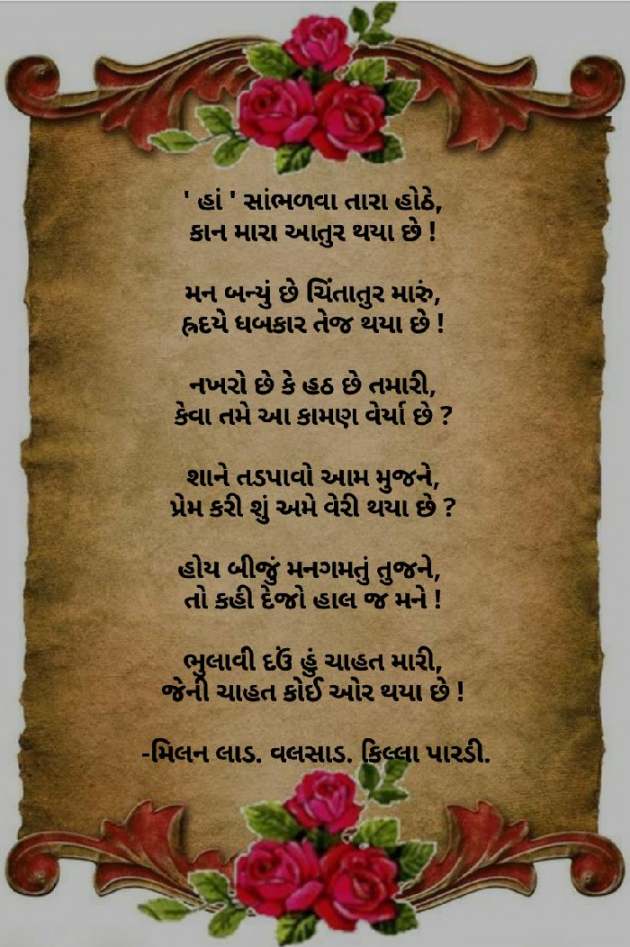 ' હાં ' સાંભળવા તારા હોઠે,
કાન મારા આતુર થયા છે !
મન બન્યું છે ચિંતાતુર મારું,
હ્રદયે ધબકાર તેજ થયા છે !
નખરો છે કે હઠ છે તમારી,
કેવા તમે આ કામણ વેર્યા છે ?
શાને તડપાવો આમ મુજને,
પ્રેમ કરી શું અમે વેરી થયા છે ?
હોય બીજું મનગમતું તુજને,
તો કહી દેજો હાલ જ મને !
ભુલાવી દઉં હું ચાહત મારી,
જેની ચાહત કોઈ ઓર થયા છે !
-મિલન લાડ. વલસાડ. કિલ્લા પારડી.